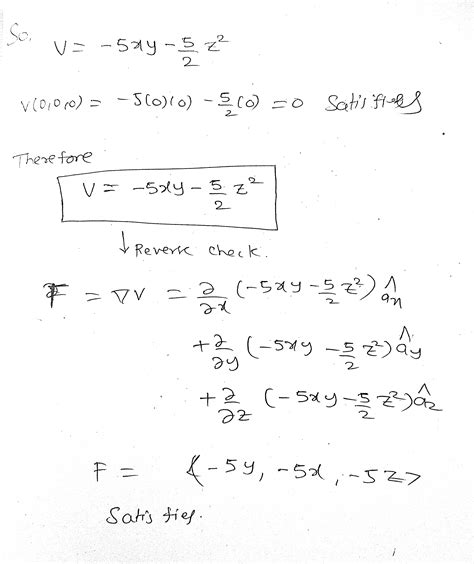 So,
V = -5xy - 5/2 z²
V(0,0,0) = -5(0)(0) - 5/2 (0) = 0 Satisfies
Therefore
V = -5xy - 5/2 z²
↓ Reverse check.
F = ∇V = ∂/∂x (-5xy - 5/2 z²) âx
+ ∂/∂y (-5xy - 5/2 z²) ây
+ ∂/∂z (-5xy - 5/2 z²) âz
F = <-5y, -5x, -5z>
Satisfies.